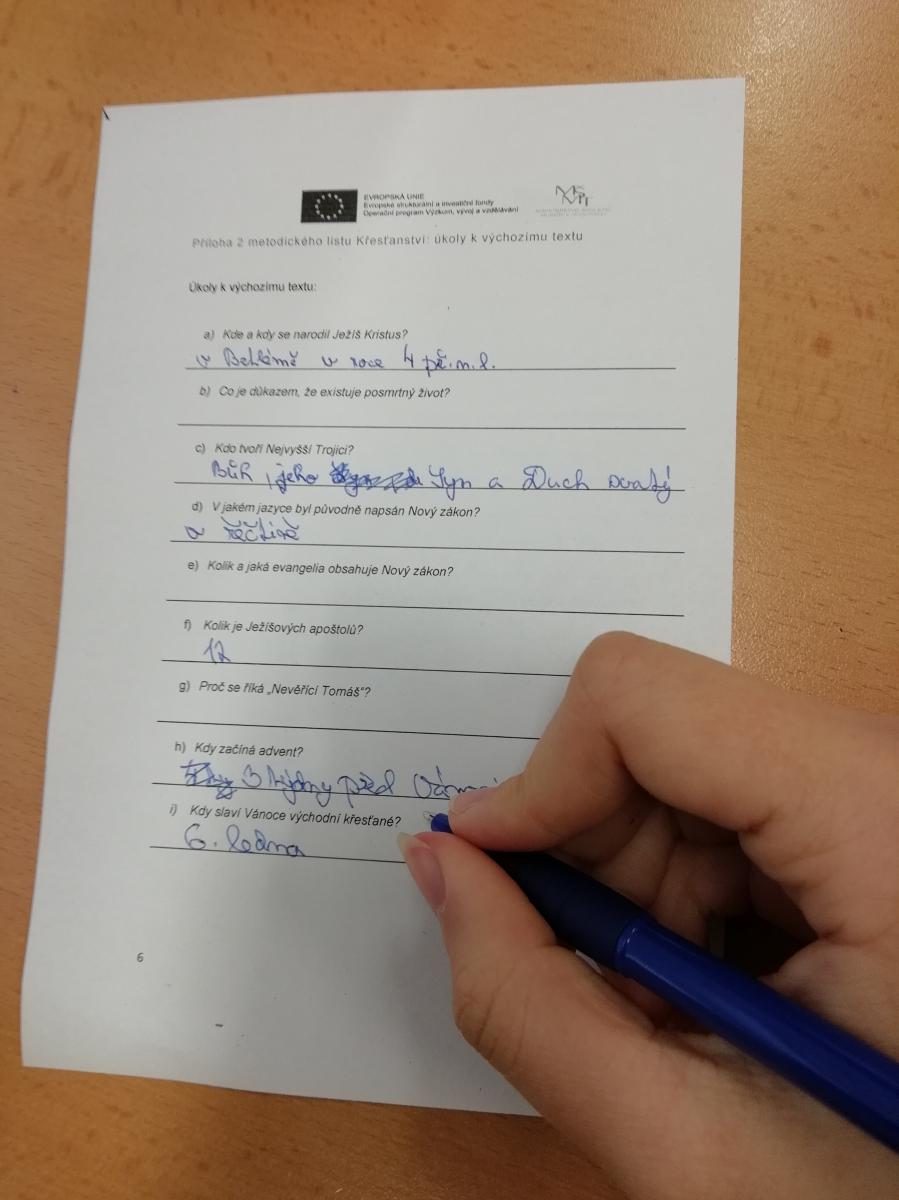 EVROPSKÁ UNIE
Evropské strukturální a investiční fondy
Operační program Výzkum, vývoj a vzdělávání
MŠMT
Příloha 2 metodického listu Křesťanství: úkoly k výchozímu textu
Úkoly k výchozímu textu:
a) Kde a kdy se narodil Ježíš Kristus?
v Betlémě v roce 4 př.n.l.
b) Co je důkazem, že existuje posmrtný život?
c) Kdo tvoří Nejvyšší Trojici?
Bůh, jeho Syn a Duch svatý
d) V jakém jazyce byl původně napsán Nový zákon?
v řečtině
e) Kolik a jaká evangelia obsahuje Nový zákon?
f) Kolik je Ježíšových apoštolů?
12
g) Proč se říká „Nevěřící Tomáš“?
h) Kdy začíná advent?
3 týdny před
i) Kdy slaví Vánoce východní křesťané?
6. ledna
6